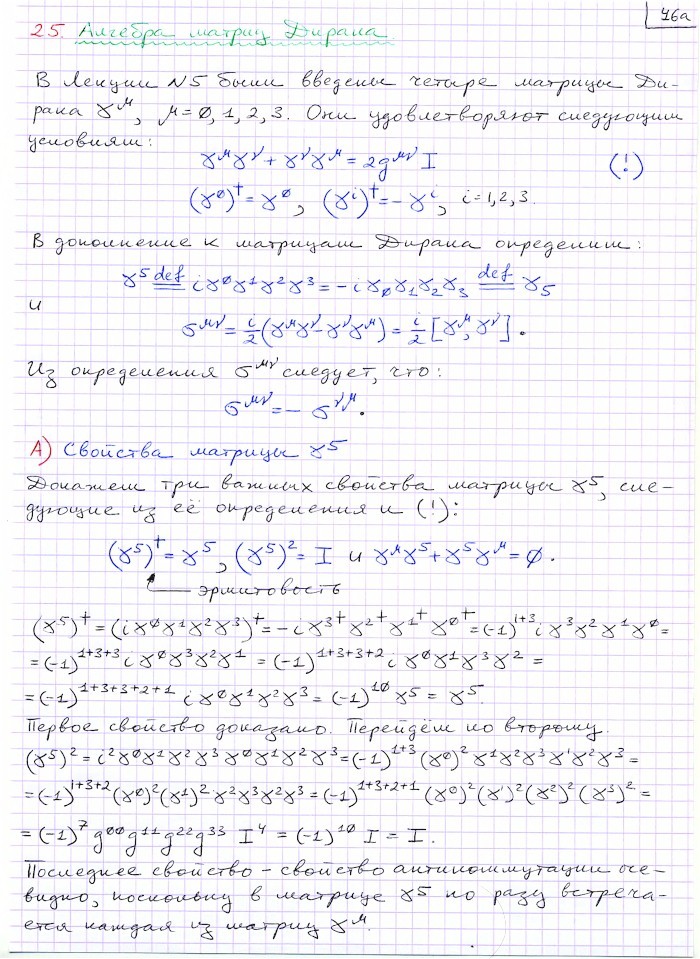 46а
25. Алгебра матриц Дирака.
В Лекции №5 были введены четыре матрицы Ди-
рака γ^μ, μ=0,1,2,3. Они удовлетворяют следующим
условиям:
γ^μγ^ν + γ^νγ^μ = 2g^{μν} I (!)
(γ^0)^† = γ^0, (γ^i)^† = -γ^i, i=1,2,3.
В дополнение к матрицам Дирака определим:
γ^5 \overset{def}{=} iγ^0γ^1γ^2γ^3 = -iγ_0γ_1γ_2γ_3 \overset{def}{=} γ_5
и
σ^{μν} = \frac{i}{2}(γ^μγ^ν - γ^νγ^μ) = \frac{i}{2}[γ^μ, γ^ν].
Из определения σ^{μν} следует, что:
σ^{μν} = - σ^{νμ}.
А) Свойства матрицы γ^5
Докажем три важных свойства матрицы γ^5, сле-
дующие из её определения и (!):
(γ^5)^† = γ^5, (γ^5)^2 = I и γ^μγ^5 + γ^5γ^μ = 0.
эрмитовость
(γ^5)^† = (iγ^0γ^1γ^2γ^3)^† = -iγ^{3†}γ^{2†}γ^{1†}γ^{0†} = (-1)^{1+3} iγ^3γ^2γ^1γ^0 =
= (-1)^{1+3+3} iγ^0γ^3γ^2γ^1 = (-1)^{1+3+3+2} iγ^0γ^1γ^3γ^2 =
= (-1)^{1+3+3+2+1} iγ^0γ^1γ^2γ^3 = (-1)^{10} γ^5 = γ^5.
Первое свойство доказано. Перейдём ко второму.
(γ^5)^2 = i^2γ^0γ^1γ^2γ^3γ^0γ^1γ^2γ^3 = (-1)^{1+3}(γ^0)^2γ^1γ^2γ^3γ^1γ^2γ^3 =
= (-1)^{1+3+2}(γ^0)^2(γ^1)^2γ^2γ^3γ^2γ^3 = (-1)^{1+3+2+1}(γ^0)^2(γ^1)^2(γ^2)^2(γ^3)^2 =
= (-1)^7 g^{00}g^{11}g^{22}g^{33} I^4 = (-1)^{10} I = I.
Последнее свойство - свойство антикоммутации оче-
видно, поскольку в матрице γ^5 по разу встреча-
ется каждая из матриц γ^μ.